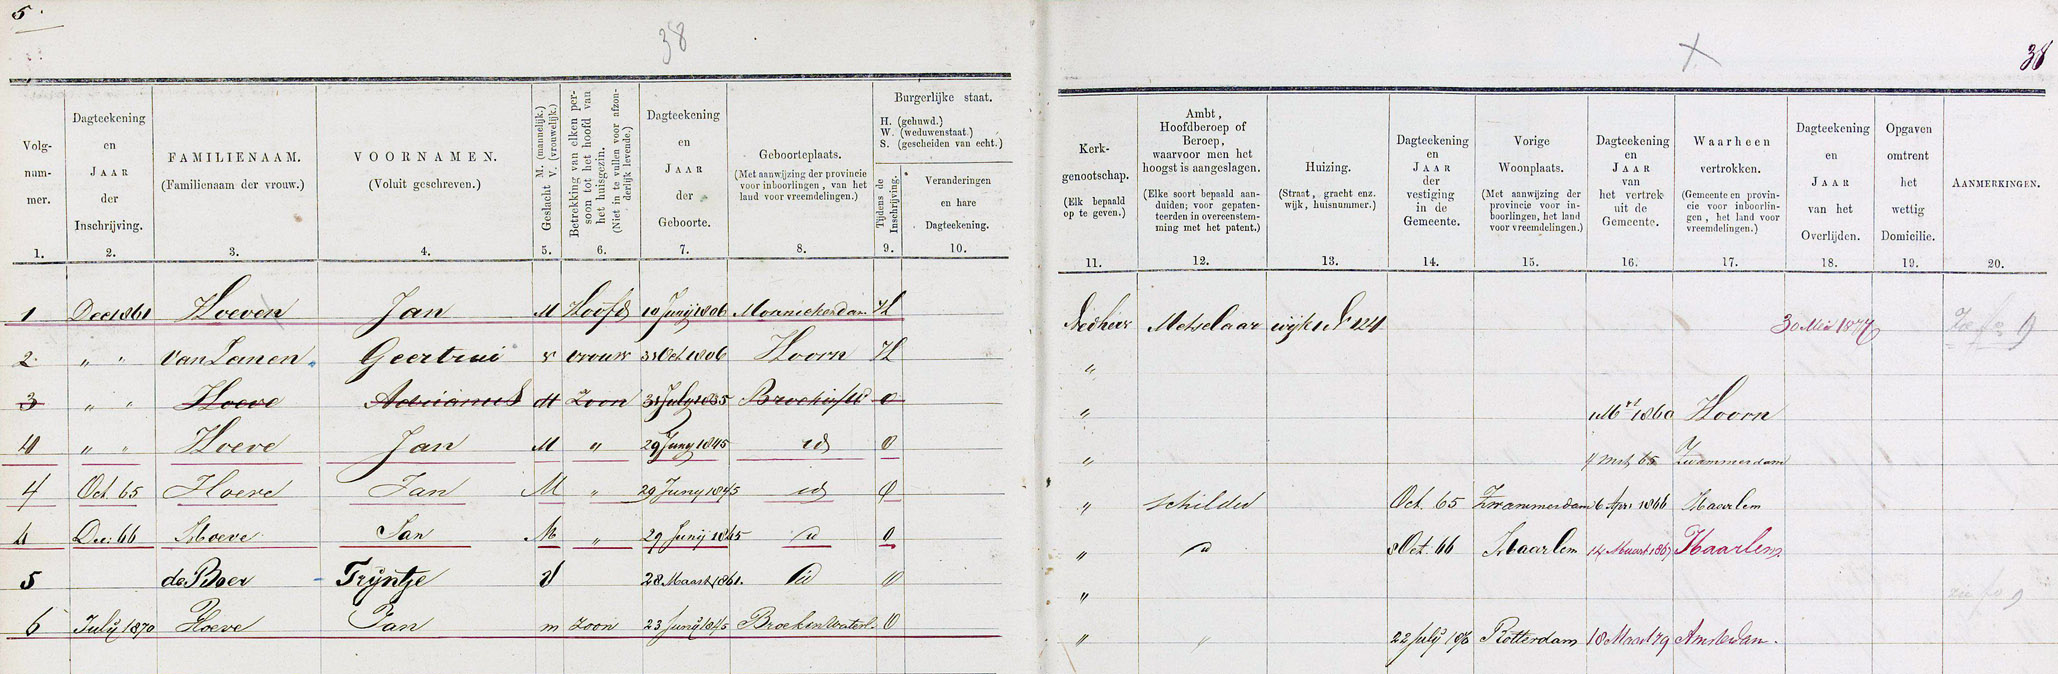 5.
38
38
Volg-
num-
mer.
1.
Dagteekening
en
JAAR
der
Inschrijving.
2.
FAMILIENAAM.
(Familienaam der vrouw.)
3.
VOORNAMEN.
(Voluit geschreven.)
4.
Geslacht M. (mannelijk.)
V. (vrouwelijk.)
5.
Betrekking van elken per-
soon tot het hoofd van
het huisgezin.
(Niet in te vullen voor afzon-
derlijk levende.)
6.
Dagteekening
en
JAAR
der
Geboorte.
7.
Geboorteplaats.
(Met aanwijzing der provincie
voor inboorlingen, van het
land voor vreemdelingen.)
8.
Burgerlijke staat.
H. (gehuwd.)
W. (weduwenstaat.)
S. (gescheiden van echt.)
Tijdens de
Inschrijving.
9.
Veranderingen
en hare
Dagteekening.
10.
Kerk-
genootschap.
(Elk bepaald
op te geven.)
11.
Ambt,
Hoofdberoep of
Beroep,
waarvoor men het
hoogst is aangeslagen.
(Elke soort bepaald aan-
duiden; voor gepaten-
teerden in overeenstem-
ming met het patent.)
12.
Huizing.
(Straat, gracht enz.
wijk, huisnummer.)
13.
Dagteekening
en
JAAR
der
vestiging
in de
Gemeente.
14.
Vorige
Woonplaats.
(Met aanwijzing der
provincie voor in-
boorlingen, het land
voor vreemdelingen.)
15.
Dagteekening
en
JAAR
van
het vertrek
uit de
Gemeente.
16.
Waarheen
vertrokken.
(Gemeente en provin-
cie voor inboorlin-
gen, het land voor
vreemdelingen.)
17.
Dagteekening
en
JAAR
van het
Overlijden.
18.
Opgaven
omtrent
het
wettig
Domicilie.
19.
AANMERKINGEN.
20.
1 Dec 1861 Hoeven Jan M Hoofd 10 Junij 1806 Monnickendam H Nedherv Metselaar wijk 1 N 224 30 Mei 1877
2. " " van Lanen Geertrui v vrouw 31 Oct 1806 Hoorn H "
3 " " Hoeve Adrianus M Zoon 31 July 1835 0 " 1860 Hoorn
4 " " Hoeve Jan M " 29 Juny 1845 id 0 " 4 65 Zwammerdam
4 Oct. 65 Hoeve Jan M " 29 Juny 1845 id 0 " schilder Oct. 65 Zwammerdam 6 Apr 1866 Haarlem
4 Dec: 66 Hoeve Jan M " 29 Junij 1845 id 0 " id 8 Oct. 66 Haarlem 14 Maart 1867 Haarlem
5 de Boer Trijntje V 28 Maart 1861. id 0 "
6 July 1870 Hoeve Jan m zoon 23 Junij 1845 Broekin Waterl. 0 " " 22 July Rotterdam 18 Maart 79 Amsterdam.